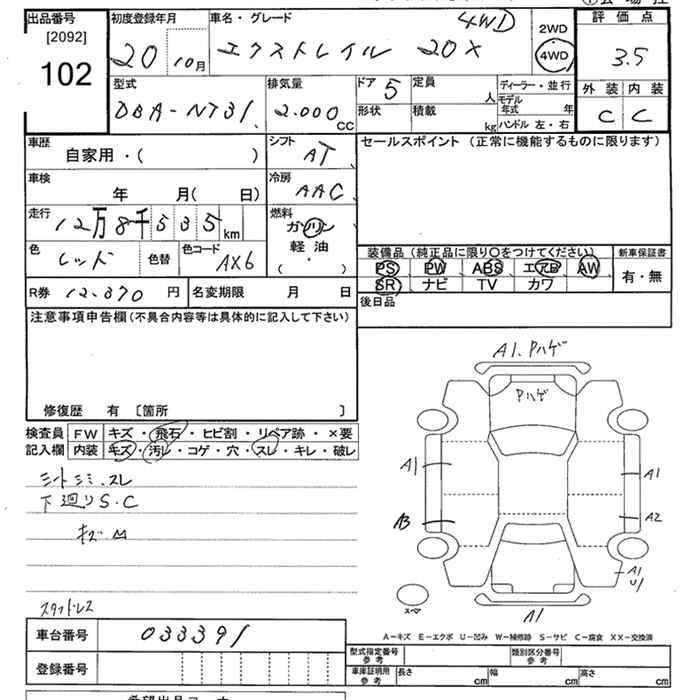 出品番号
[2092]
102
初度登録年月
20 10月
車名・グレード
4WD
エクストレイル 20X
2WD
4WD
評価点
3.5
外装 内装
C C
型式
DBA-NT31
排気量
2.000
CC
ドア 5
定員
人
形状
積載
kg
ディーラー・並行
モデル年式 年
ハンドル 左・右
車歴
自家用・( )
シフト
AT
車検
年 月( 日)
冷房
AAC
走行
12万8千535km
燃料
ガソリン
軽油
( ・ )
色
レッド
色替
色コード
AX6
R券 12.370 円
名変期限 月 日
セールスポイント (正常に機能するものに限ります)
装備品 (純正品に限り○をつけてください)
PS PW ABS エアB AW
SR ナビ TV カワ
新車保証書
有・無
後日品
注意事項申告欄(不具合内容等は具体的に記入して下さい)
修復歴 有 〔箇所 〕
検査員 FW キズ・飛石・ヒビ割・リペア跡・×要
記入欄 内装 キズ・汚レ・コゲ・穴・スレ・キレ・破レ
シートシミ.スレ
下廻りS.C
キズM
スタッドレス
A1.Pハゲ
Pハゲ
A1
A1
A3
A2
A1
U1
スペア
A1
A-キズ E-エクボ U-凹み W-補修跡 S-サビ C-腐食 XX-交換済
車台番号 033391
登録番号
型式指定番号
参考
類別区分番号
参考
車庫証明用
参考
長さ cm
幅 cm
高さ cm